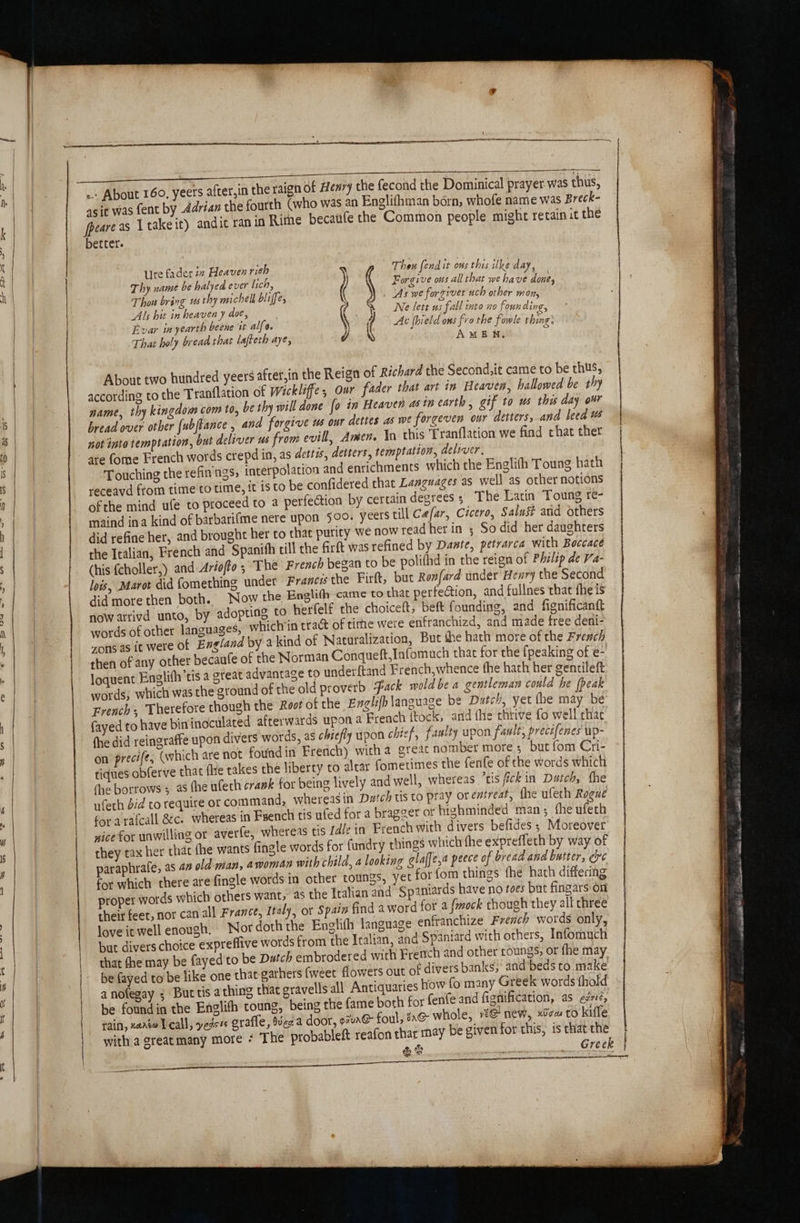 About 160, yeers after, in the raign of Henry the second the Dominical prayer was thus,
as it was sent by Adrian the fourth (who was an Englishman born, whose name was Breck-
speare as I take it) and it ran in Rithe because the Common people might retain it the
better.
Ure fader in Heaven rich
Thy name be halyed ever lich,
Thou bring us thy michell blisse,
Als hit in heaven y doe,
Evar in yearth beene it also.
That holy bread that lasteth aye,
Thou send it ons this ilke day,
Forgive ons all that we have done,
As we forgivet uch other mon,
Ne lett us fall into no founding,
Ac shield ons fro the fowle thing.
AMEN.
About two hundred yeers after, in the Reign of Richard the Second, it came to be thus,
according to the Translation of Wickliffe, Our fader that art in Heaven, hallowed be thy
name, thy kingdom com to, be thy will done so in Heaven as in earth, gif to us this day our
bread over other substance, and forgive us our dettes as we forgeven our detters, and leed us
not into temptation, but deliver us from evill, Amen. In this Translation we find that ther
are some French words crepd in, as dettis, detters, temptation, deliver.
Touching the refinings, interpolation and enrichments which the English Toung hath
receavd from time to time, it is to be considered that Languages as well as other notions
of the mind use to proceed to a perfection by certain degrees; The Latin Toung re-
maind in a kind of barbarisme nere upon 500. yeers till Cesar, Cicero, Salust and others
did refine her, and brought her to that purity we now read her in; So did her daughters
the Italian, French and Spanish till the first was refined by Dante, petrarca with Boccace
(his scholler,) and Ariosto; The French began to be polishd in the reign of Philip de Va-
lois, Marot did something under Francis the First, but Ronsard under Henry the Second
did more then both. Now the English came to that perfection, and fullnes that she is
now arrivd unto, by adopting to herself the choicest, best sounding, and significantst
words of other languages, which in tract of time were enfranchizd, and made free deni-
zons as it were of England by a kind of Naturalization, But she hath more of the French
then of any other because of the Norman Conquest, Insomuch that for the speaking of e-
loquent English 'tis a great advantage to understand French, whence she hath her gentilest
words, which was the ground of the old proverb Jack wold be a gentleman could he speak
French; Therefore though the Root of the English language be Dutch, yet she may be
sayed to have bin inoculated afterwards upon a French stock, and she thrive so well that
she did reingraffe upon divers words, as chiefly upon chief, faulty upon fault, precisenes up-
on precise, (which are not found in French) with a great nomber more; but som Cri-
tiques observe that she takes the liberty to altar somtimes the sense of the words which
she borrows; as she useth crank for being lively and well, whereas 'tis sick in Dutch, she
useth bid to require or command, whereas in Dutch tis to pray or entreat, she useth Rogue
for a rascall &c. whereas in French tis used for a bragger or highminded man; she useth
nice for unwilling or averse, whereas tis Idle in French with divers besides; Moreover
they tax her that she wants single words for sundry things which she expresseth by way of
paraphrase, as an old man, a woman with child, a looking glasse, a peece of bread and butter, &c
for which there are single words in other toungs, yet for som things she hath differing
proper words which others want, as the Italian and Spaniards have no toes but fingars on
their feet, nor can all France, Italy, or Spain find a word for a smock though they all three
love it well enough. Nor doth the English language enfranchize French words only,
but divers choice expressive words from the Italian, and Spaniard with others, Insomuch
that she may be sayed to be Dutch embrodered with French and other toungs, or she may
be sayed to be like one that gathers sweet flowers out of divers banks, and beds to make
a nosegay; But tis a thing that gravells all Antiquaries how so many Greek words shold
be found in the English toung, being the same both for sense and signification, as
rain, I call, graffe, a door, foul, whole, new, to kisse
with a great many more: The probablest reason that may be given for this, is that the
Greek